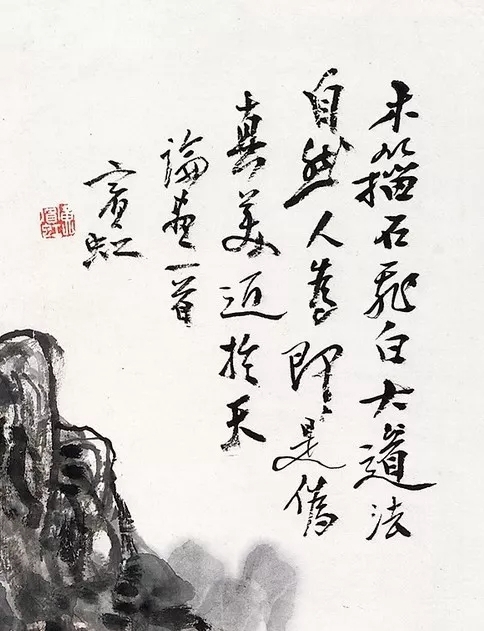 木籀石飛白大道法
自然人為即是偽
真美近於天
論畫一首
賓虹